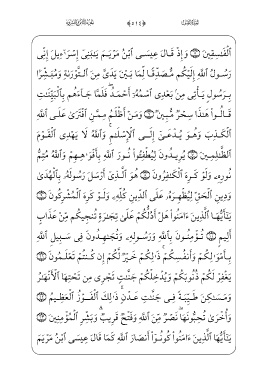 ٱلْفَـٰسِقِينَ وَإِذْ قَالَ عِيسَى ٱبْنُ مَرْيَمَ يَـٰبَنِىٓ إِسْرَٰٓءِيلَ إِنِّى
رَسُولُ ٱللَّهِ إِلَيْكُم مُّصَدِّقًا لِّمَا بَيْنَ يَدَىَّ مِنَ ٱلتَّوْرَىٰةِ وَمُبَشِّرًۢا
بِرَسُولٍ يَأْتِى مِنۢ بَعْدِى ٱسْمُهُۥٓ أَحْمَدُ فَلَمَّا جَآءَهُم بِٱلْبَيِّنَـٰتِ
قَالُوا۟ هَـٰذَا سِحْرٌ مُّبِينٌ وَمَنْ أَظْلَمُ مِمَّنِ ٱفْتَرَىٰ عَلَى ٱللَّهِ
ٱلْكَذِبَ وَهُوَ يُدْعَىٰٓ إِلَى ٱلْإِسْلَـٰمِ وَٱللَّهُ لَا يَهْدِى ٱلْقَوْمَ
ٱلظَّـٰلِمِينَ يُرِيدُونَ لِيُطْفِـُٔوا۟ نُورَ ٱللَّهِ بِأَفْوَٰهِهِمْ وَٱللَّهُ مُتِمُّ
نُورِهِۦ وَلَوْ كَرِهَ ٱلْكَـٰفِرُونَ هُوَ ٱلَّذِىٓ أَرْسَلَ رَسُولَهُۥ بِٱلْهُدَىٰ
وَدِينِ ٱلْحَقِّ لِيُظْهِرَهُۥ عَلَى ٱلدِّينِ كُلِّهِۦ وَلَوْ كَرِهَ ٱلْمُشْرِكُونَ
يَـٰٓأَيُّهَا ٱلَّذِينَ ءَامَنُوا۟ هَلْ أَدُلُّكُمْ عَلَىٰ تِجَـٰرَةٍ تُنجِيكُم مِّنْ عَذَابٍ
أَلِيمٍ تُؤْمِنُونَ بِٱللَّهِ وَرَسُولِهِۦ وَتُجَـٰهِدُونَ فِى سَبِيلِ ٱللَّهِ
بِأَمْوَٰلِكُمْ وَأَنفُسِكُمْ ذَٰلِكُمْ خَيْرٌ لَّكُمْ إِن كُنتُمْ تَعْلَمُونَ
يَغْفِرْ لَكُمْ ذُنُوبَكُمْ وَيُدْخِلْكُمْ جَنَّـٰتٍ تَجْرِى مِن تَحْتِهَا ٱلْأَنْهَـٰرُ
وَمَسَـٰكِنَ طَيِّبَةً فِى جَنَّـٰتِ عَدْنٍ ذَٰلِكَ ٱلْفَوْزُ ٱلْعَظِيمُ
وَأُخْرَىٰ تُحِبُّونَهَا نَصْرٌ مِّنَ ٱللَّهِ وَفَتْحٌ قَرِيبٌ وَبَشِّرِ ٱلْمُؤْمِنِينَ
يَـٰٓأَيُّهَا ٱلَّذِينَ ءَامَنُوا۟ كُونُوٓا۟ أَنصَارَ ٱللَّهِ كَمَا قَالَ عِيسَى ٱبْنُ مَرْيَمَ